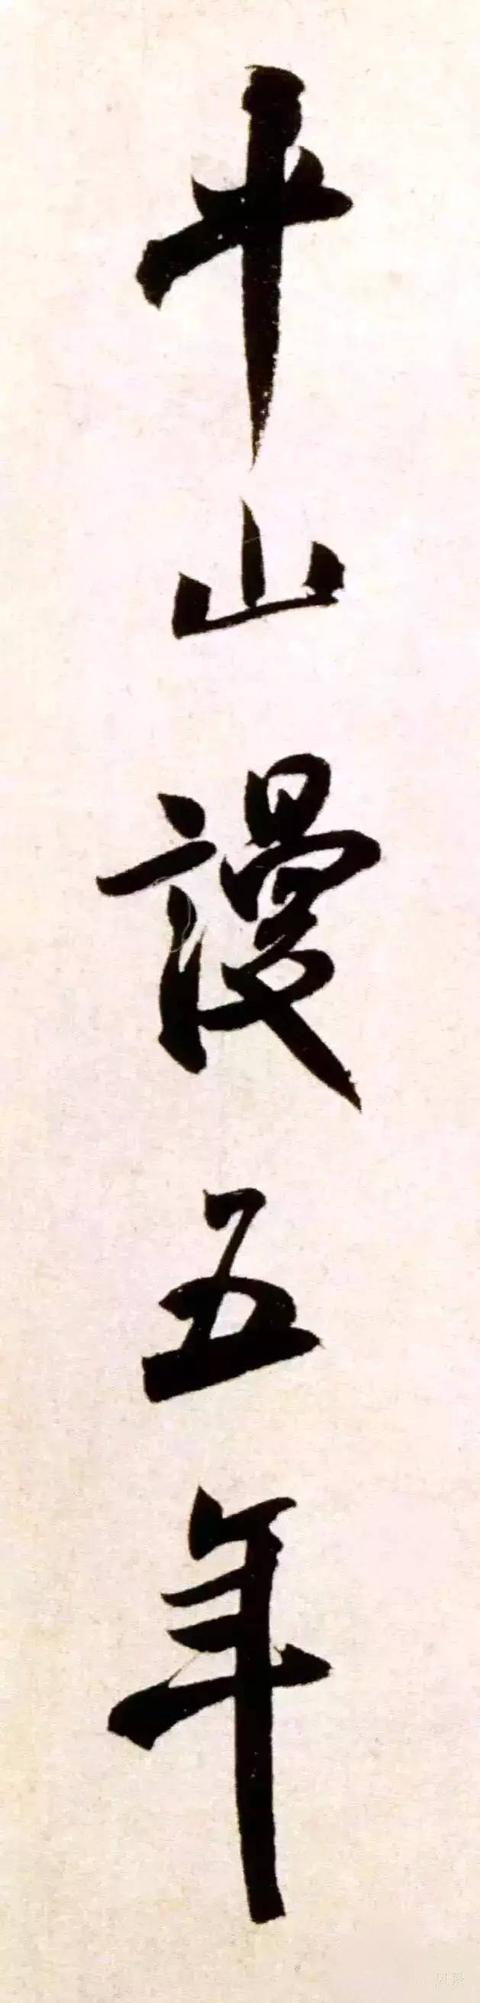 半山謾五年